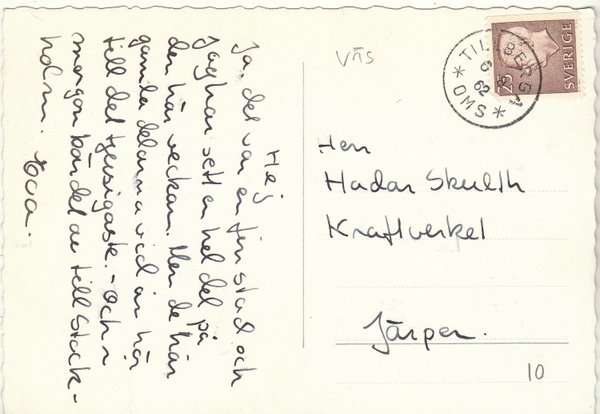 Hej
Ja, det var en fin stad och
jag har sett en hel del på
den här veckan. Men de här
gamla delarna vid ån hör
till det tjusigaste. - Och i
morgon bär det av till Stock-
holm. Eva.
Vns
TILLBERGA
62
* OMS *
25
SVERIGE
Herr
Hadar Skulth
Kraftverket
Järpen.
10